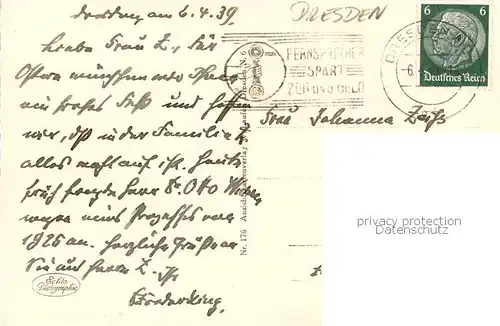 Dresden am 6.4.39
Liebe Frau Z., für
Ostern wünschen wir Ihnen
ein frohes Fest und hoffen
wir, daß in der Familie
alles wohl auf ist. Heute
früh fragte Herr Dr. Otto
wegen eines Prozesses von
1925 an. Herzliche Grüße an
Sie und Herrn Z. Ihr
Echte Photographie
Nr. 176 Ansichtskartenverlag
DRESDEN
FERNSPRECHER
SPART
ZEIT UND GELD
DRESDEN
6 6
Deutsches Reich
Frau Johanna
privacy protection
Datenschutz